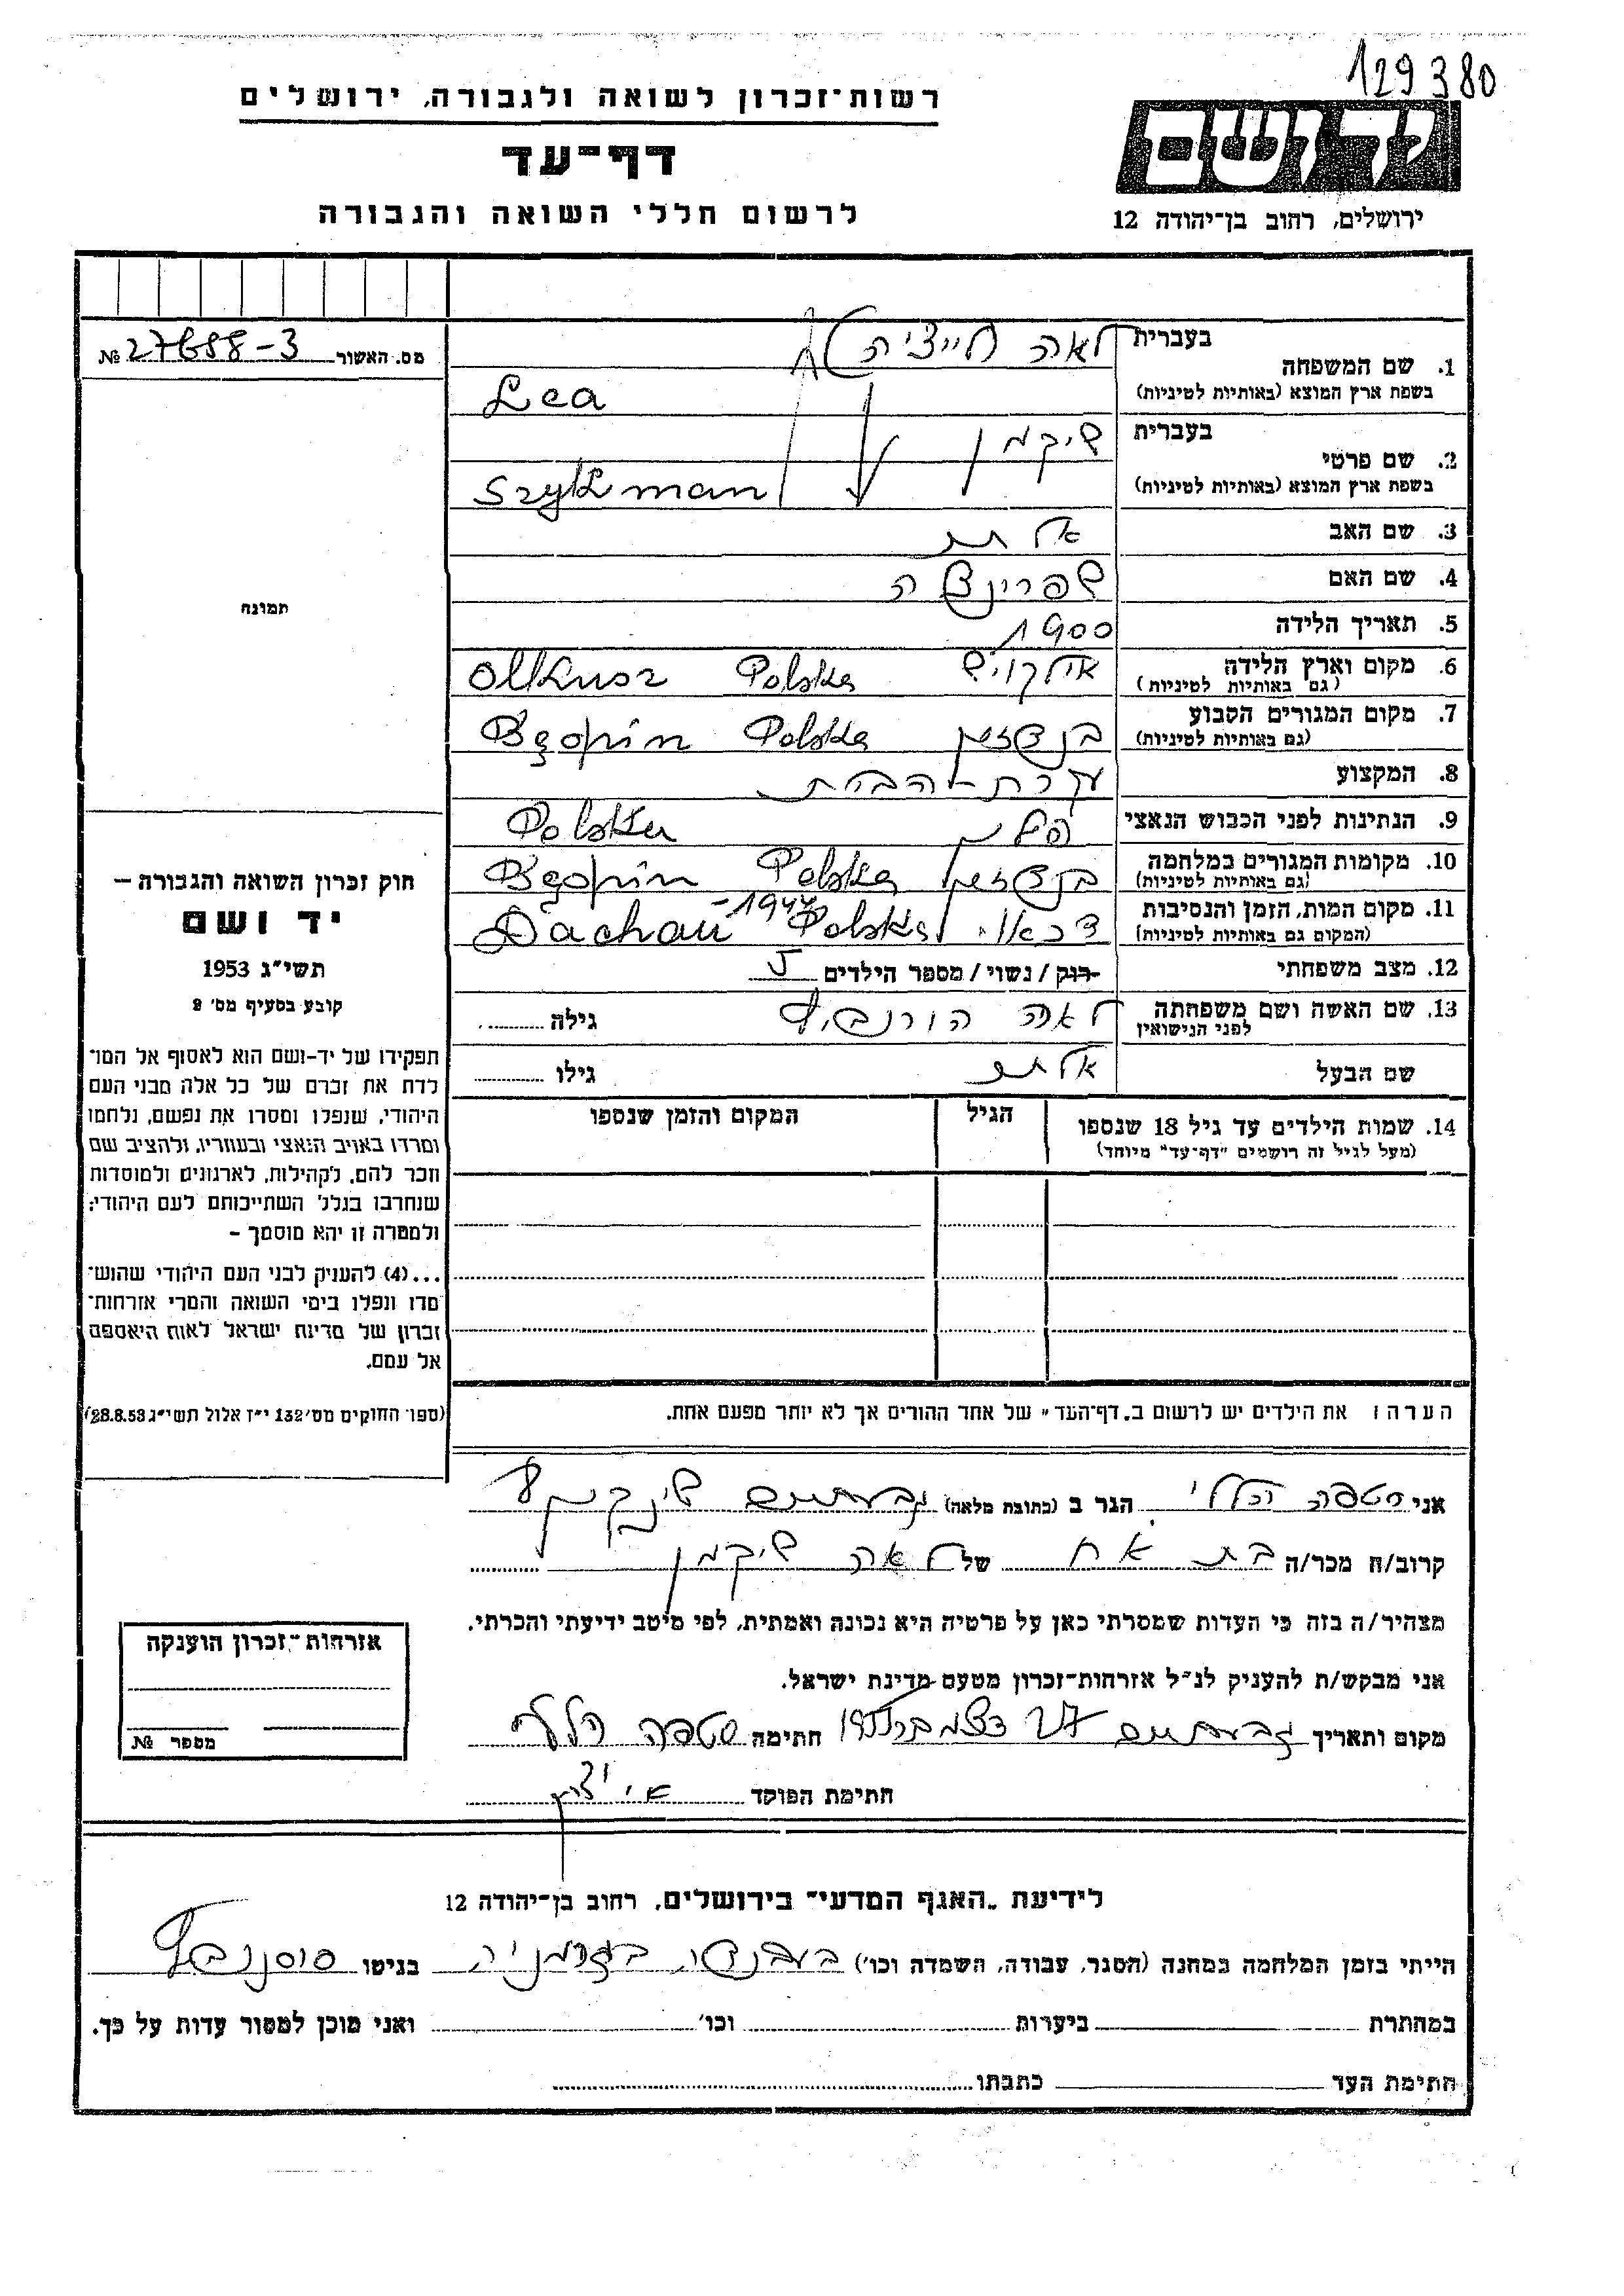 129380
רשות־זכרון לשואה ולגבורה, ירושלים
דף־עד
לרשום חללי השואה והגבורה
יד ושם
ירושלים, רחוב בן־יהודה 12
מס. האשור 27688-3 №
תמונה
1. שם המשפחה
בעברית לאה
בשפת ארץ המוצא (באותיות לטיניות) Lea
2. שם פרטי
בעברית שיקמן
בשפת ארץ המוצא (באותיות לטיניות) Szykman
3. שם האב
4. שם האם שפרינצה
5. תאריך הלידה 1900
6. מקום וארץ הלידה אילקויש Olkusz Polska
(גם באותיות לטיניות)
7. מקום המגורים הקבוע בנדזין Będzin Polska
(גם באותיות לטיניות)
8. המקצוע עקרת הבית
9. הנתינות לפני הכבוש הנאצי Polska
10. מקומות המגורים במלחמה בנדזין Będzin Polska
(גם באותיות לטיניות)
11. מקום המות, הזמן והנסיבות דכאו Dachau Polska -1944
(המקום גם באותיות לטיניות)
12. מצב משפחתי רוק / נשוי / מספר הילדים 5
13. שם האשה ושם משפחתה לאה
לפני הנישואין
גילה
שם הבעל
גילו
14. שמות הילדים עד גיל 18 שנספו
(מעל לגיל זה רושמים "דף־עד" מיוחד)
הגיל
המקום והזמן שנספו
הערה: את הילדים יש לרשום ב„דף־העד" של אחד ההורים אך לא יותר מפעם אחת.
חוק זכרון השואה והגבורה –
יד ושם
תשי"ג 1953
קובע בסעיף מס' 2
תפקידו של יד-ושם הוא לאסוף אל המו־
לדת את זכרם של כל אלה מבני העם
היהודי, שנפלו ומסרו את נפשם, נלחמו
ומרדו באויב הנאצי ובעוזריו, ולהציב שם
וזכר להם, לקהילות, לארגונים ולמוסדות
שנחרבו בגלל השתייכותם לעם היהודי;
ולמטרה זו יהא מוסמך –
...(4) להעניק לבני העם היהודי שהוש־
מדו ונפלו בימי השואה והמרי אזרחות־
זכרון של מדינת ישראל לאות היאספם
אל עמם.
(ספר החוקים מס' 132 י"ז אלול תשי"ג 28.8.53)
אני סטפה הללי הגר ב (כתובת מלאה) גבעתיים
קרוב/ה מכר/ה בת אח של לאה שיקמן
מצהיר/ה בזה כי העדות שמסרתי כאן על פרטיה היא נכונה ואמתית, לפי מיטב ידיעתי והכרתי.
אני מבקש/ת להעניק לנ"ל אזרחות־זכרון מטעם מדינת ישראל.
מקום ותאריך גבעתיים 27 דצמבר חתימה סטפה הללי
חתימת הפוקד
אזרחות־זכרון הוענקה
מספר №
לידיעת „האגף המדעי" בירושלים, רחוב בן־יהודה 12
הייתי בזמן המלחמה במחנה (הסגר, עבודה, השמדה וכו') בגרמניה בגיטו
במחתרת ביערות וכו' ואני מוכן למסור עדות על כך.
חתימת העד כתבתו